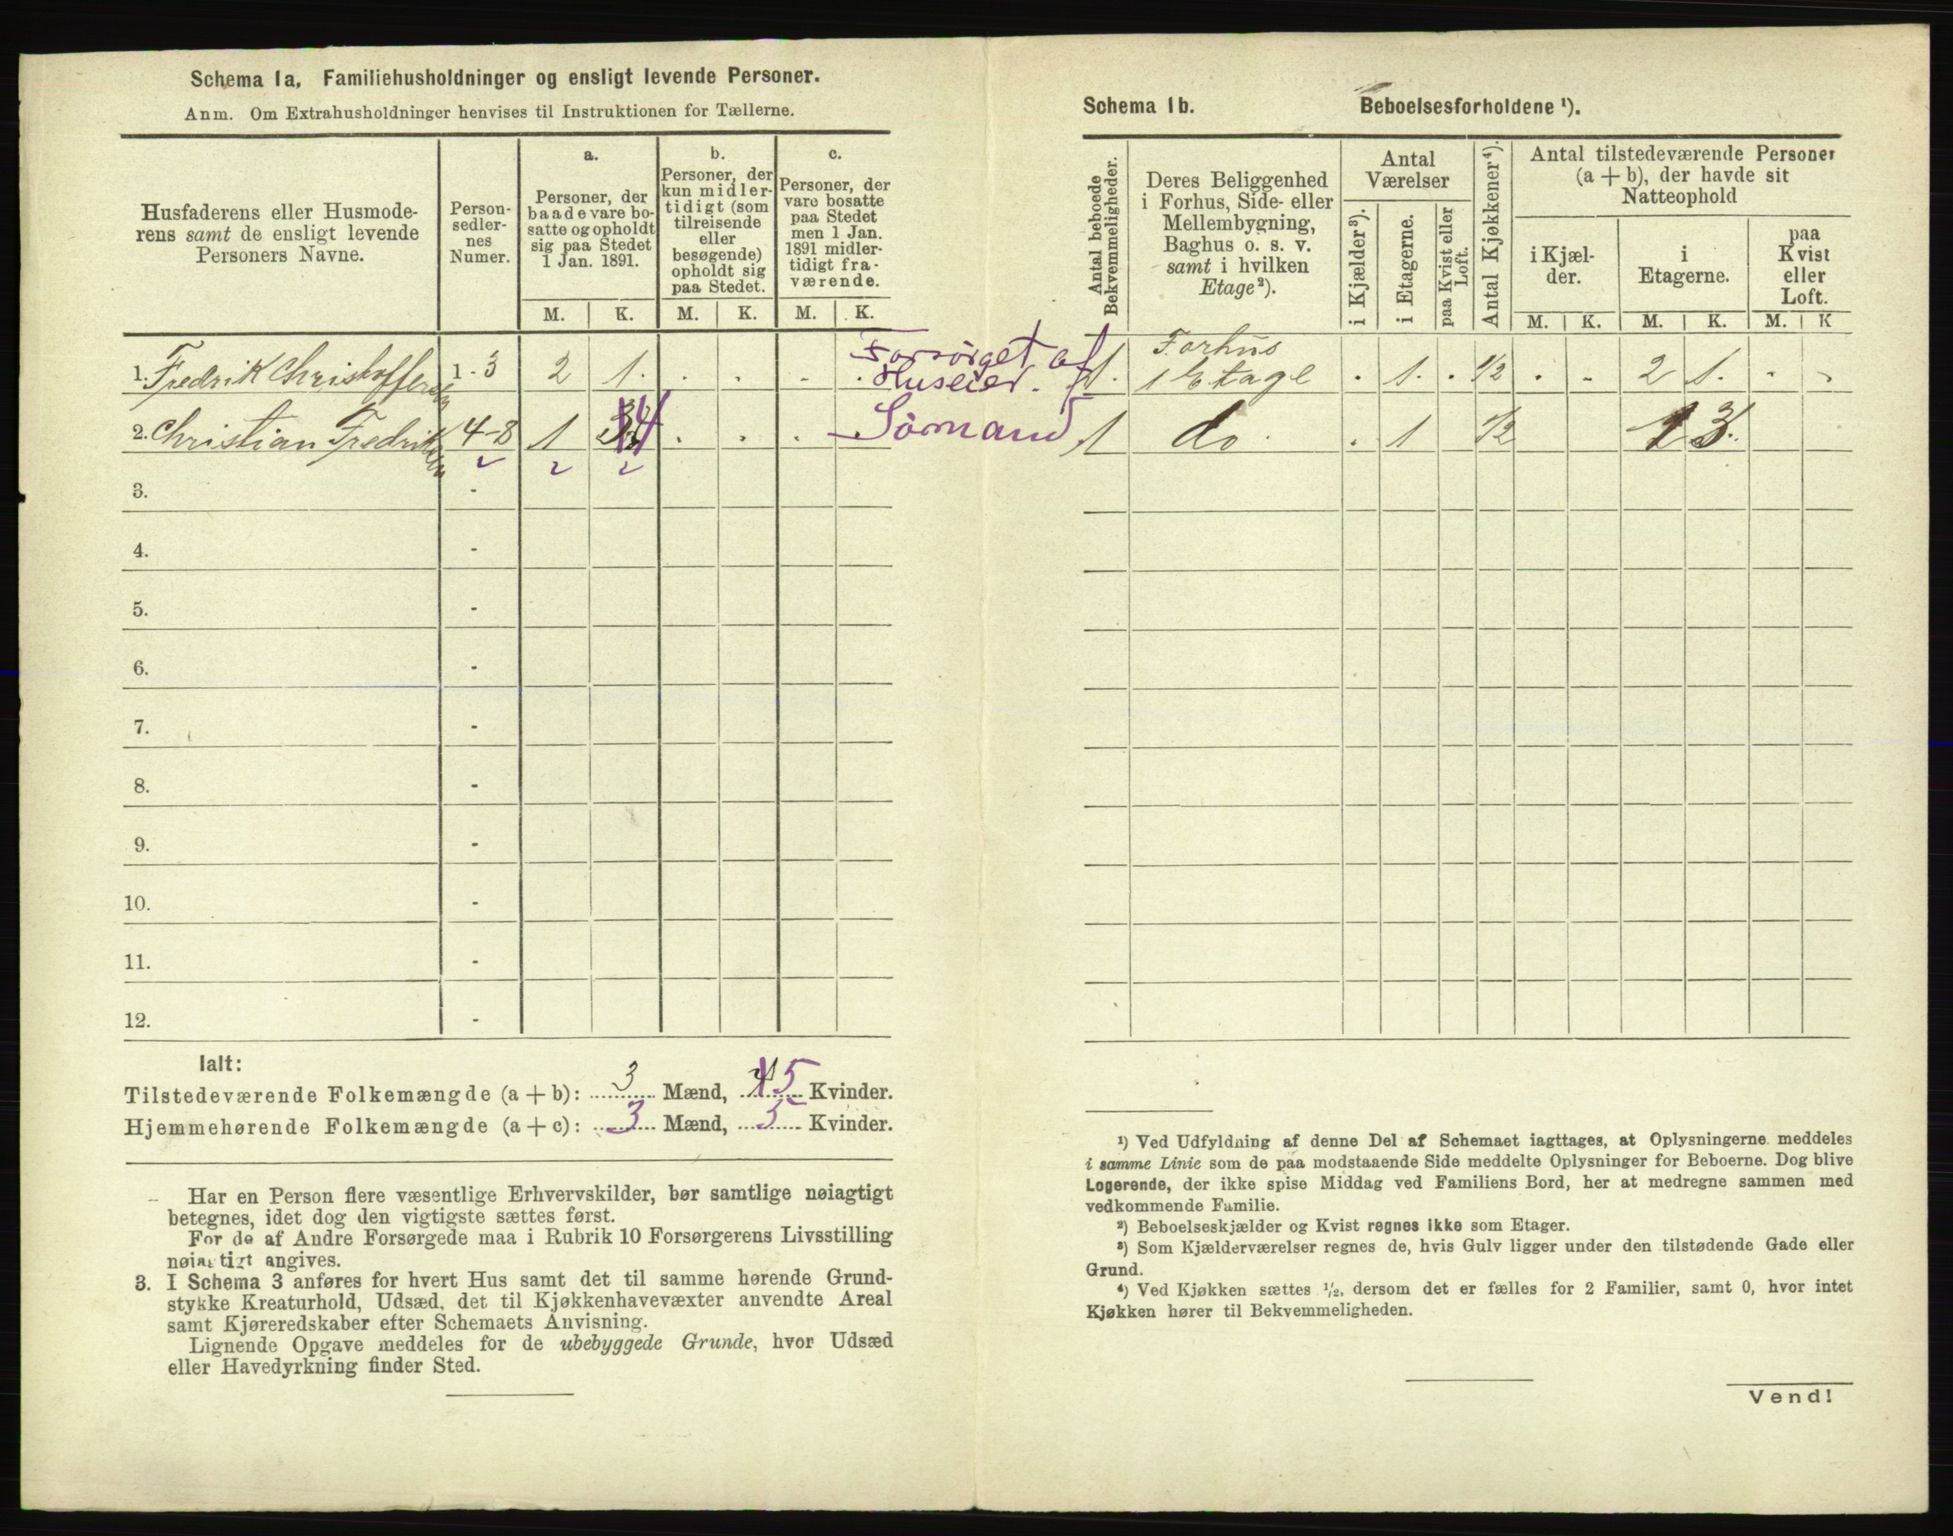 Schema 1a, Familiehusholdninger og ensligt levende Personer.
Anm. Om Extrahusholdninger henvises til Instruktionen for Tællerne.
Husfaderens eller Husmode-
rens samt de ensligt levende
Personers Navne.
Person-
sedler-
nes
Numer.
a.
Personer, der
baade vare bo-
satte og opholdt
sig paa Stedet
1 Jan. 1891.
b.
Personer, der
kun midler-
tidigt (som
tilreisende
eller
besøgende)
opholdt sig
paa Stedet.
c.
Personer, der
vare bosatte
paa Stedet
men 1 Jan.
1891 midler-
tidigt fra-
værende.
M. K. M. K. M. K.
1. Fredrik Christoffersen 1-3 2 1. . . . . Forsørget af
Huseier.
2. Christian Fredriksen 4-8 1 4 . . . Sømand
3. -
4. -
5. -
6. -
7. -
8. -
9. -
10. -
11. -
12. -
Ialt:
Tilstedeværende Folkemængde (a + b): 3 Mænd, 4 5 Kvinder.
Hjemmehørende Folkemængde (a + c): 3 Mænd, 5 Kvinder.
Har en Person flere væsentlige Erhvervskilder, bør samtlige nøiagtigt
betegnes, idet dog den vigtigste sættes først.
For de af Andre Forsørgede maa i Rubrik 10 Forsørgerens Livsstilling
nøiagtigt angives.
3. I Schema 3 anføres for hvert Hus samt det til samme hørende Grund-
stykke Kreaturhold, Udsæd, det til Kjøkkenhavevæxter anvendte Areal
samt Kjøreredskaber efter Schemaets Anvisning.
Lignende Opgave meddeles for de ubebyggede Grunde, hvor Udsæd
eller Havedyrkning finder Sted.
Schema 1b. Beboelsesforholdene ¹).
Antal beboede
Bekvemmeligheder.
Deres Beliggenhed
i Forhus, Side- eller
Mellembygning,
Baghus o. s. v.
samt i hvilken
Etage²).
Antal
Værelser
i Kjælder³).
i Etagerne.
paa Kvist eller
Loft.
Antal Kjøkkener⁴).
Antal tilstedeværende Personer
(a + b), der havde sit
Natteophold
i Kjæl-
der.
i
Etagerne.
paa
Kvist
eller
Loft.
M. K. M. K. M. K
1. Forhus
1 Etage . 1. . 1/2 . . 2 1. . .
1 do. . 1 1/2 1 3.
¹) Ved Udfyldning af denne Del af Schemaet iagttages, at Oplysningerne meddeles
i samme Linie som de paa modstaaende Side meddelte Oplysninger for Beboerne. Dog blive
Logerende, der ikke spise Middag ved Familiens Bord, her at medregne sammen med
vedkommende Familie.
²) Beboelseskjælder og Kvist regnes ikke som Etager.
³) Som Kjælderværelser regnes de, hvis Gulv ligger under den tilstødende Gade eller
Grund.
⁴) Ved Kjøkken sættes ½, dersom det er fælles for 2 Familier, samt 0, hvor intet
Kjøkken hører til Bekvemmeligheden.
Vend!